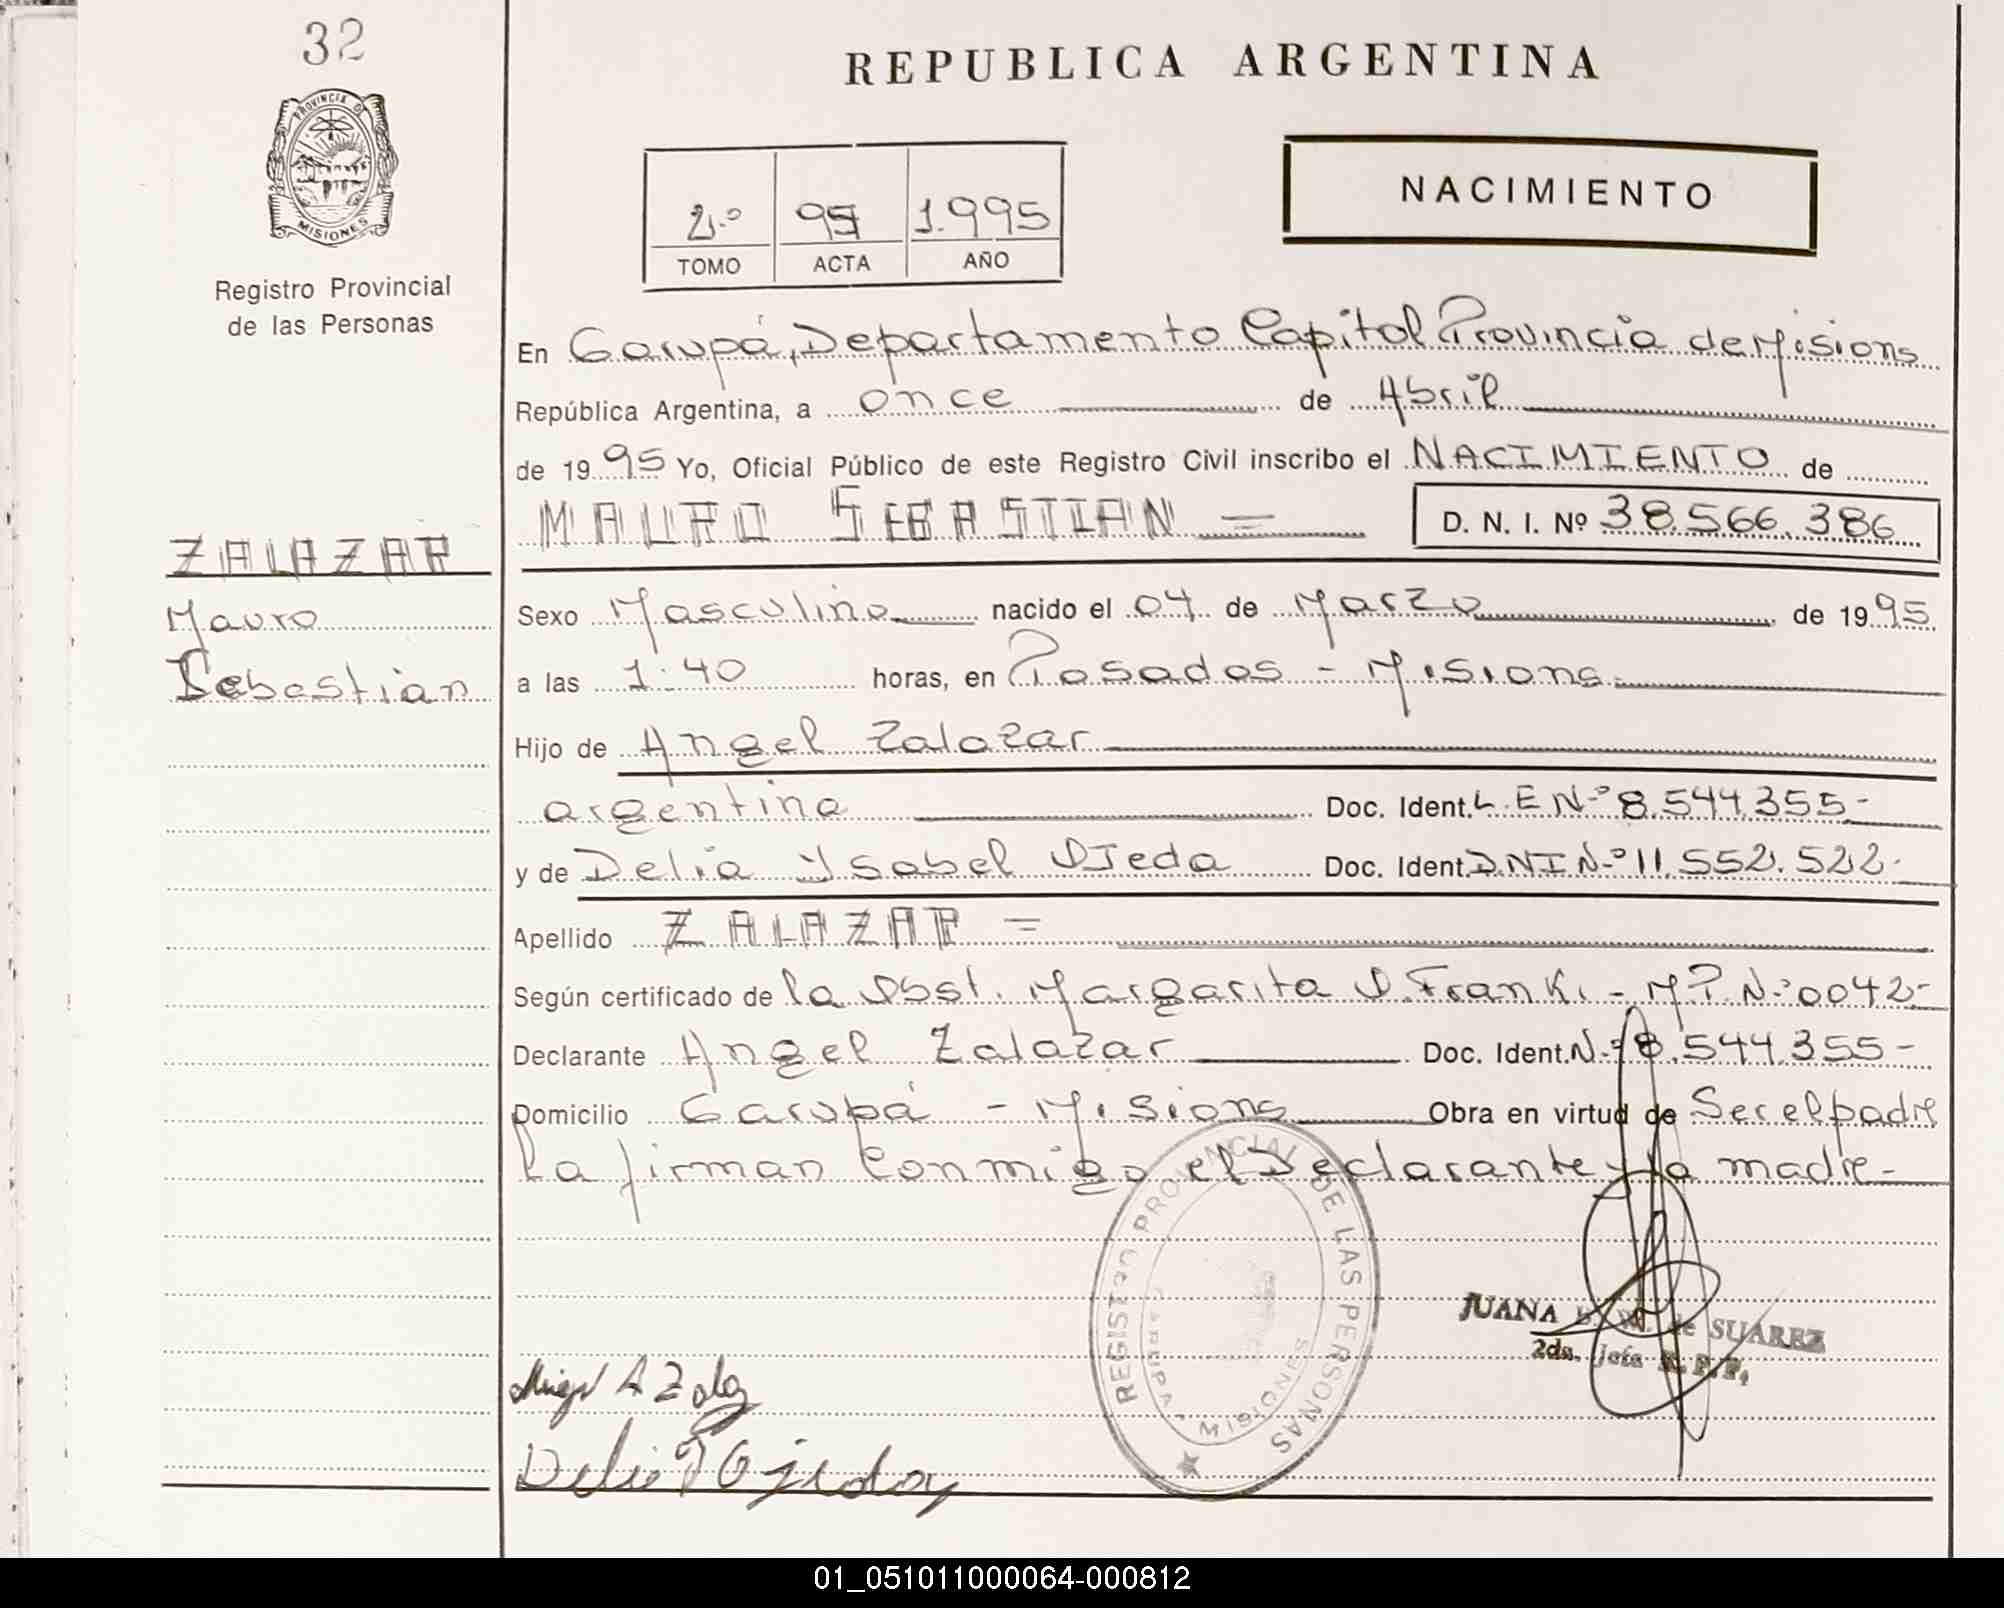 32
PROVINCIA DE
MISIONES
Registro Provincial
de las Personas
ZALAZAR
Mauro
Sebastian
REPUBLICA ARGENTINA
2º 1.995
TOMO ACTA AÑO
NACIMIENTO
En Garupá, Departamento Capital Provincia de Misiones
República Argentina, a once de Abril
de 1995 Yo, Oficial Público de este Registro Civil inscribo el NACIMIENTO de
MAURO SEBASTIAN = D. N. I. Nº 38.566.386
Sexo Masculino nacido el 04 de Marzo de 1995
a las 1:40 horas, en Posadas - Misiones
Hijo de Angel Zalazar
argentino Doc. Ident. L.E Nº 8.544.355-
y de Delia Ysabel Ojeda Doc. Ident. DNI Nº 11.552.522-
Apellido ZALAZAR =
Según certificado de la Obst. Margarita O. Franki - M.P. Nº 0042-
Declarante Angel Zalazar Doc. Ident. Nº 8.544.355-
Domicilio Garupá - Misiones Obra en virtud de Ser el padre
La firman conmigo el Declarante y la madre-
REGISTRO PROVINCIAL DE LAS PERSONAS
GARUPA - MISIONES
JUANA de SUAREZ
2da. Jefa R. P. P.
Delia Y Ojeda
01_051011000064-000812